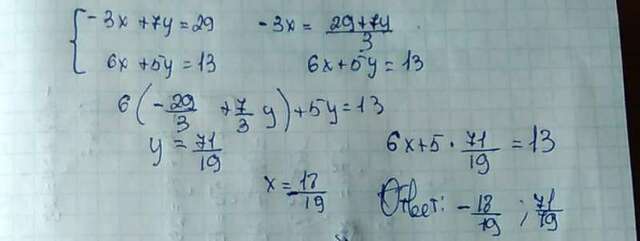 { -3x + 7y = 29    -3x = (29+7y)/3
6x + 5y = 13    6x + 5y = 13
6(-29/3 + 7/3 y) + 5y = 13
y = 71/19    6x + 5 · 71/19 = 13
x = -18/19    Ответ: -18/19 ; 71/19